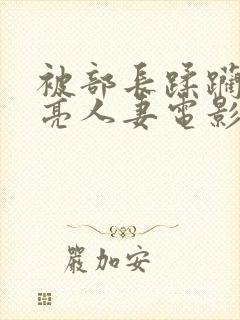 被部長蹂躪
亮人妻電影
嚴加安